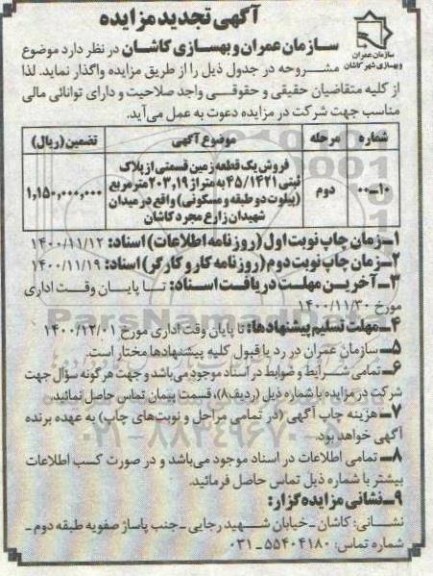 آگهی تجدید مزایده
سازمان عمران و بهسازی کاشان در نظر دارد موضوع
مشروحه در جدول ذیل را از طریق مزایده واگذار نماید. لذا
سازمان عمران
وبهسازی شهر کاشان
از کلیه متقاضیان حقیقی و حقوقی واجد صلاحیت و دارای توانائی مالی
مناسب جهت شرکت در مزایده دعوت به عمل می‌آید.
شماره مرحله موضوع آگهی تضمین (ریال)
فروش یک قطعه زمین قسمتی از پلاک
ثبتی ۴۵/۱۴۲۱ به متراژ ۲۰۳,۱۹ مترمربع
۱۰-۰۰ دوم (پیلوت دو طبقه و مسکونی) واقع در میدان ۱,۱۵۰,۰۰۰,۰۰۰
شهیدان زارع مجرد کاشان
۱ـ زمان چاپ نوبت اول (روزنامه اطلاعات) اسناد: ۱۴۰۰/۱۱/۱۲
۲ـ زمان چاپ نوبت دوم (روزنامه کار و کارگر) اسناد: ۱۴۰۰/۱۱/۱۹
۳ـ آخرین مهلت دریافت اسناد: تا پایان وقت اداری
مورخ ۱۴۰۰/۱۱/۳۰
۴ـ مهلت تسلیم پیشنهادها: تا پایان وقت اداری مورخ ۱۴۰۰/۱۲/۰۱
۵ـ سازمان عمران در رد یا قبول کلیه پیشنهادها مختار است.
۶ـ تمامی شرایط و ضوابط در اسناد موجود می‌باشد و جهت هرگونه سؤال جهت
شرکت در مزایده با شماره ذیل (ردیف۸)، قسمت پیمان تماس حاصل نمائید.
۷ـ هزینه چاپ آگهی (در تمامی مراحل و نوبت‌های چاپ) به عهده برنده
آگهی خواهد بود.
۸ـ تمامی اطلاعات در اسناد موجود می‌باشد و در صورت کسب اطلاعات
بیشتر با شماره ذیل تماس حاصل فرمائید.
۹ـ نشانی مزایده‌گزار:
نشانی: کاشان ـ خیابان شهید رجایی ـ جنب پاساژ صفویه طبقه دوم ـ
شماره تماس: ۵۵۴۰۴۱۸۰ ـ ۰۳۱
ParsNamadData
۰۲۱-۸۸۳۴۹۶۷۰-۵